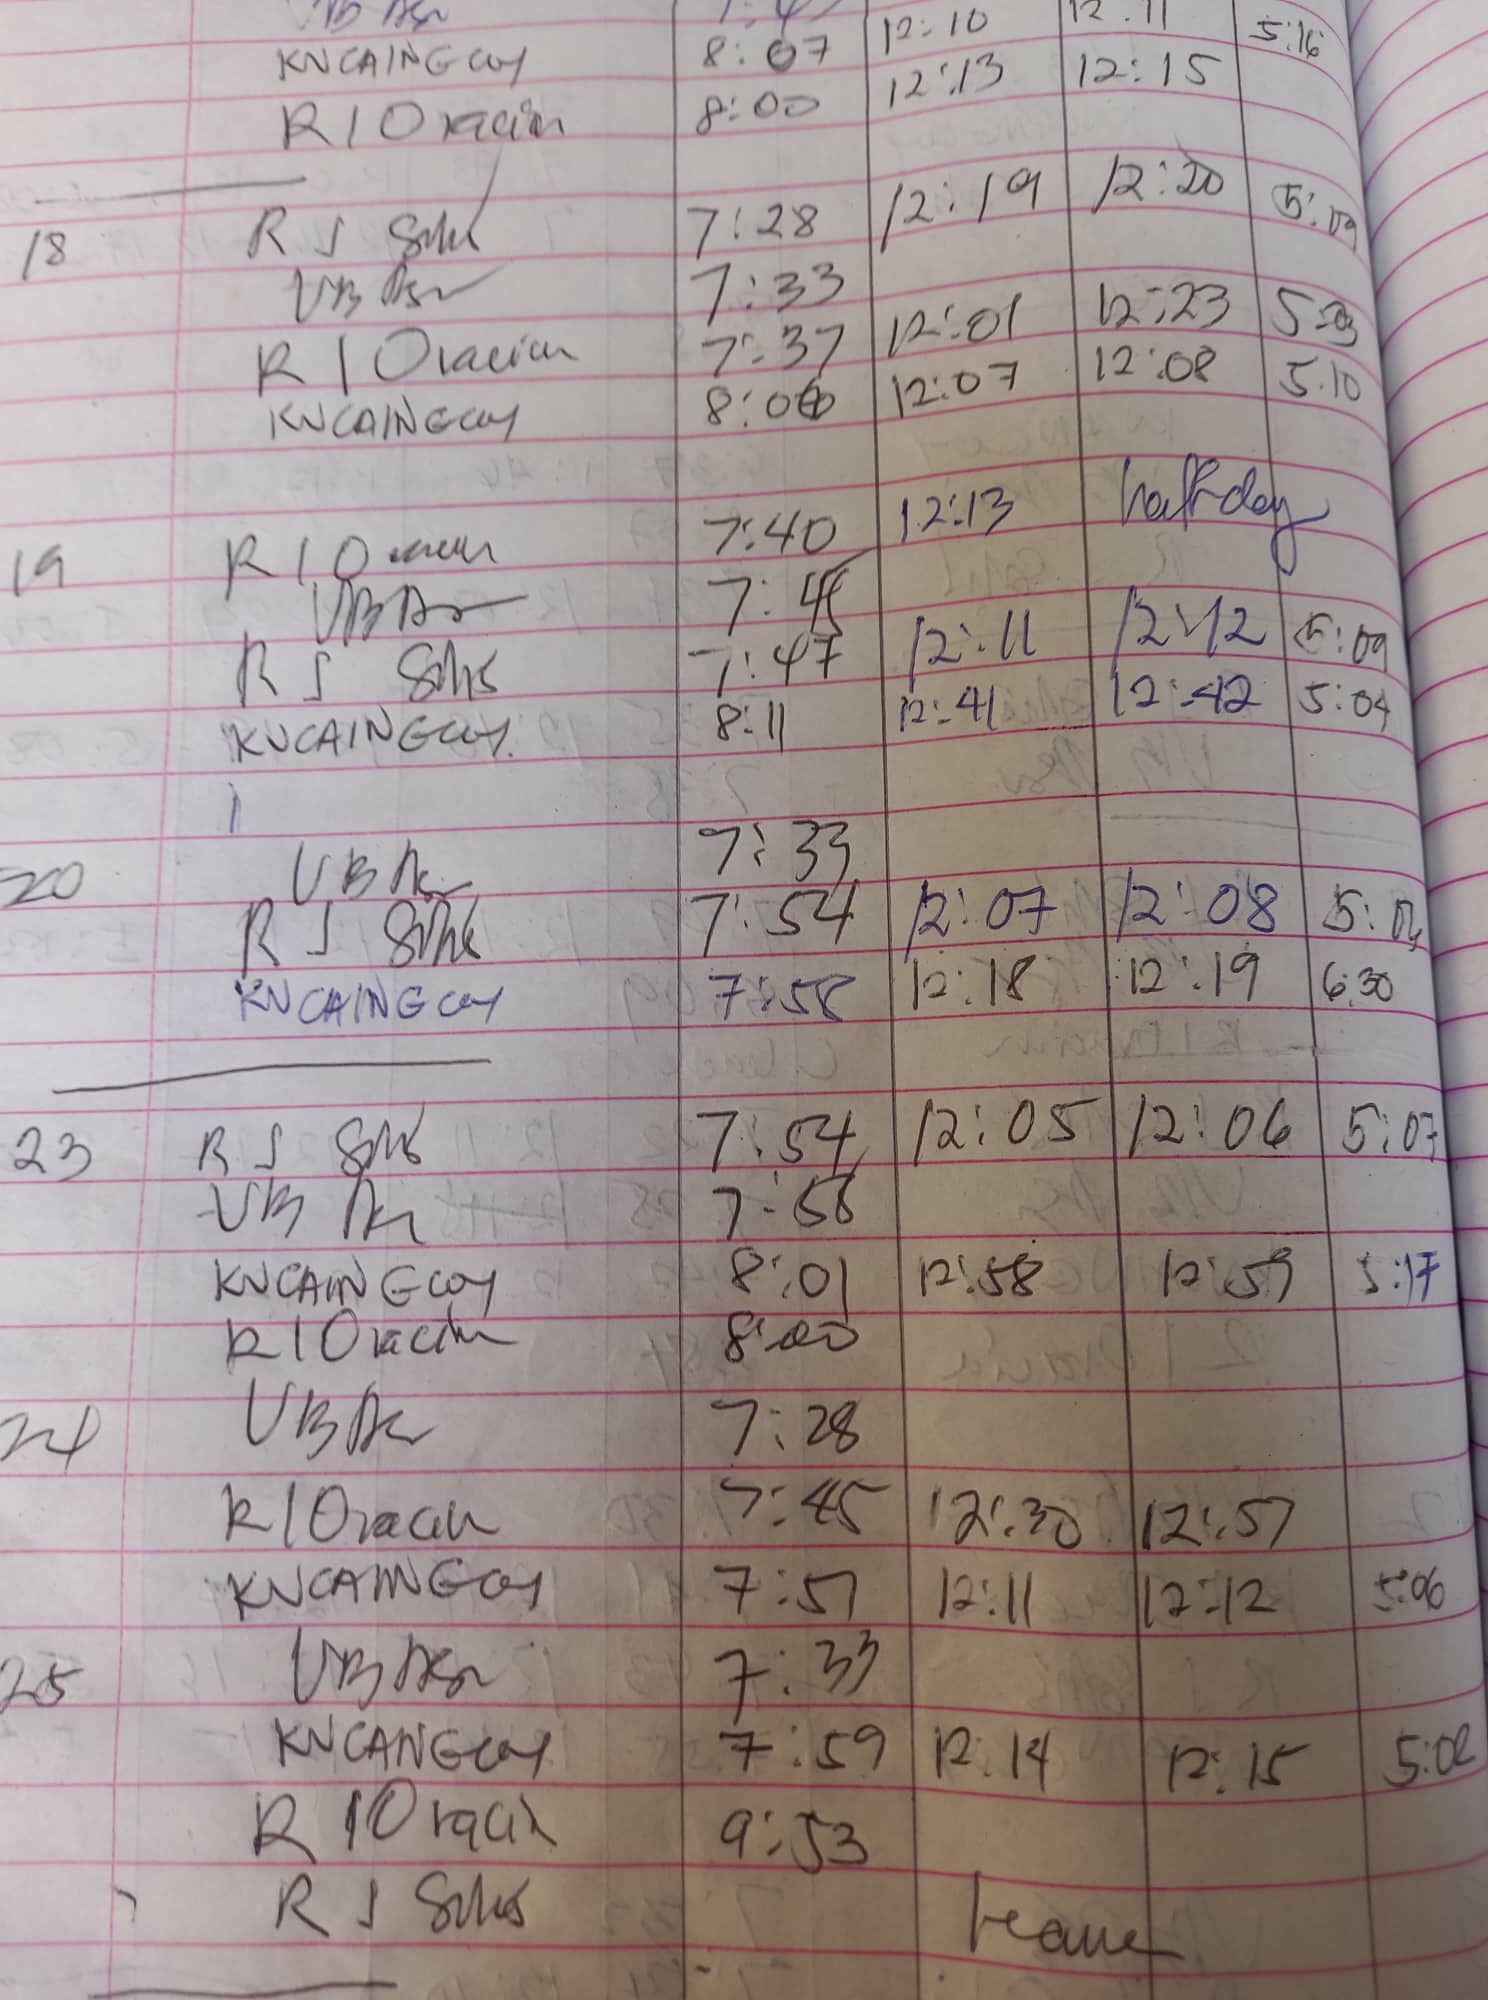 KNCAINGCOY 8:07 12:10 12:11 5:16
R I Oracion 8:00 12:13 12:15
18 R J 7:28 12:19 12:20 5:09
UB 7:33
R I Oracion 7:37 12:01 12:23 5:03
KNCAINGCOY 8:06 12:07 12:08 5:10
19 R I Oracion 7:40 12:13 halfday
UB 7:45
R J 7:47 12:11 12:12 5:09
KNCAINGCOY 8:11 12:41 12:42 5:04
20 UB 7:33
R J 7:54 12:07 12:08
KNCAINGCOY 7:58 12:18 12:19 6:30
23 R J 7:54 12:05 12:06 5:07
UB 7:58
KNCAINGCOY 8:01 12:58 12:59 5:17
R I Oracion 8:00
24 UB 7:28
R I Oracion 7:45 12:30 12:57
KNCAINGCOY 7:57 12:11 12:12 5:06
25 UB 7:33
KNCAINGCOY 7:59 12:14 12:15 5:02
R I Oracion 9:53
R J leave